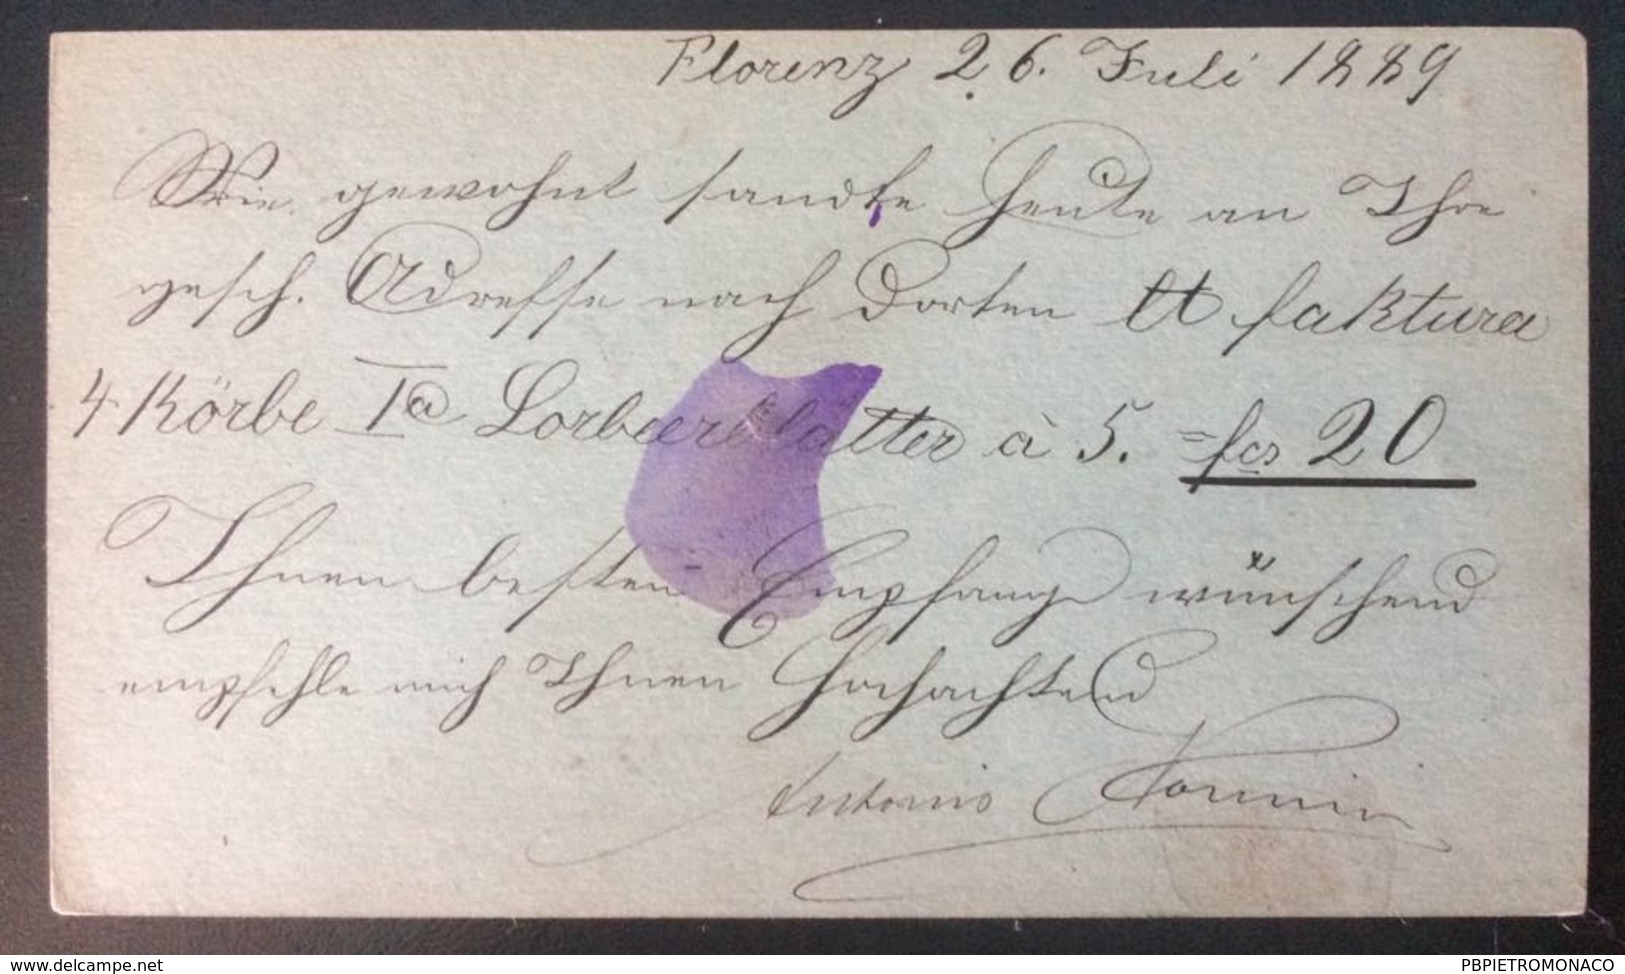 Florenz 26. Juli 1889
Wie gewohnt sandte heute an Ihre
gesch. Adresse nach dorten lt faktura
4 Körbe Ia Lorbeerblätter à 5. = fcs 20
Ihnen besten Empfang wünschend
empfehle mich Ihnen hochachtend
Antonio
www.delcampe.net
PBPIETROMONACO